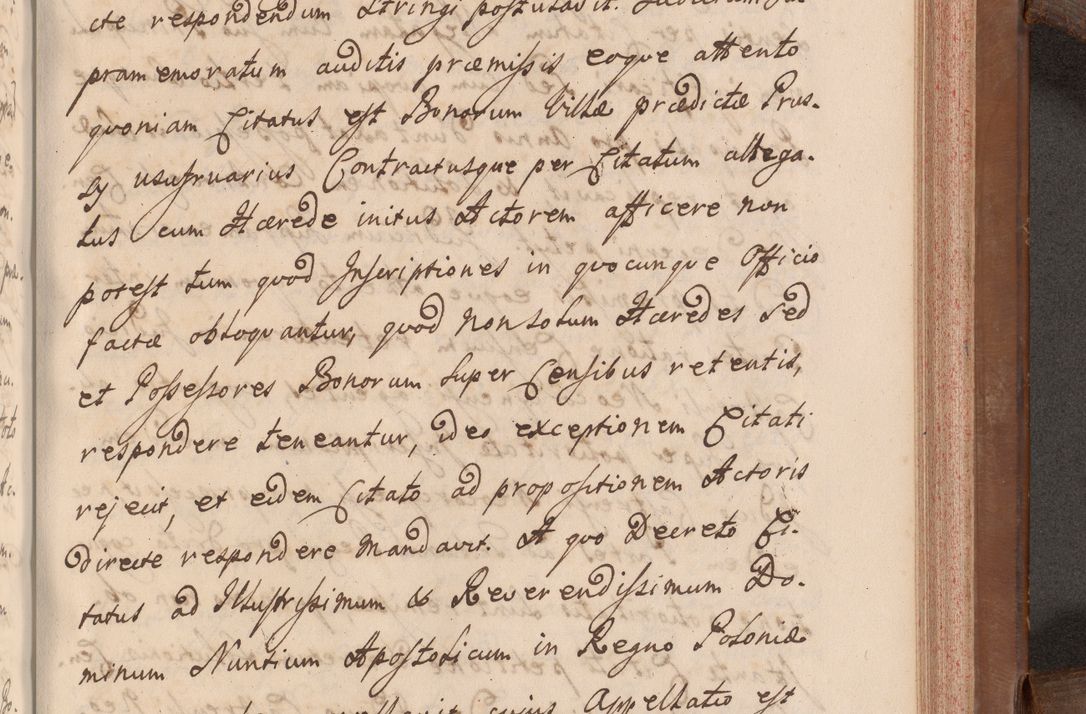 cte respondendum stringi postulavit.
pramemoratum auditis præmissis eoque attento
quoniam Citatus est Bonorum Villæ prædictæ Prus-
sy usufruarius Contractusque per Citatum allega-
tus cum Hærede initus Actorem afficere non
potest tum quod Inscriptiones in quocunque Officio
factæ obloquantur, quod non solum Hæredes sed
et Possessores Bonorum super Censibus retentis,
respondere teneantur, ideo exceptionem Citati
rejecit, et eidem Citato ad propositionem Actoris
directe respondere mandavit. A quo Decreto Ci-
tatus ad Illustrissimum & Reverendissimum Do-
minum Nuntium Apostolicum in Regno Poloniæ
cuius Appellatio est